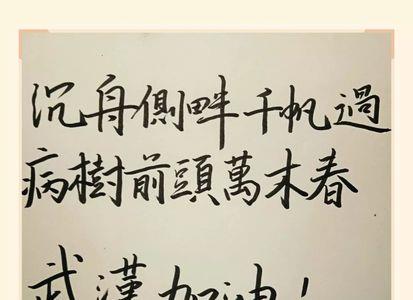 沉舟側畔千帆過
病樹前頭萬木春
武漢加油！